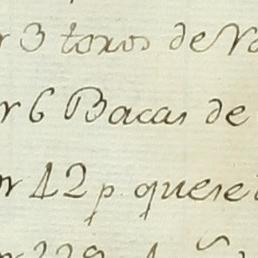 r 3 toros de No
r 6 Bacas de
r 12 p. quese